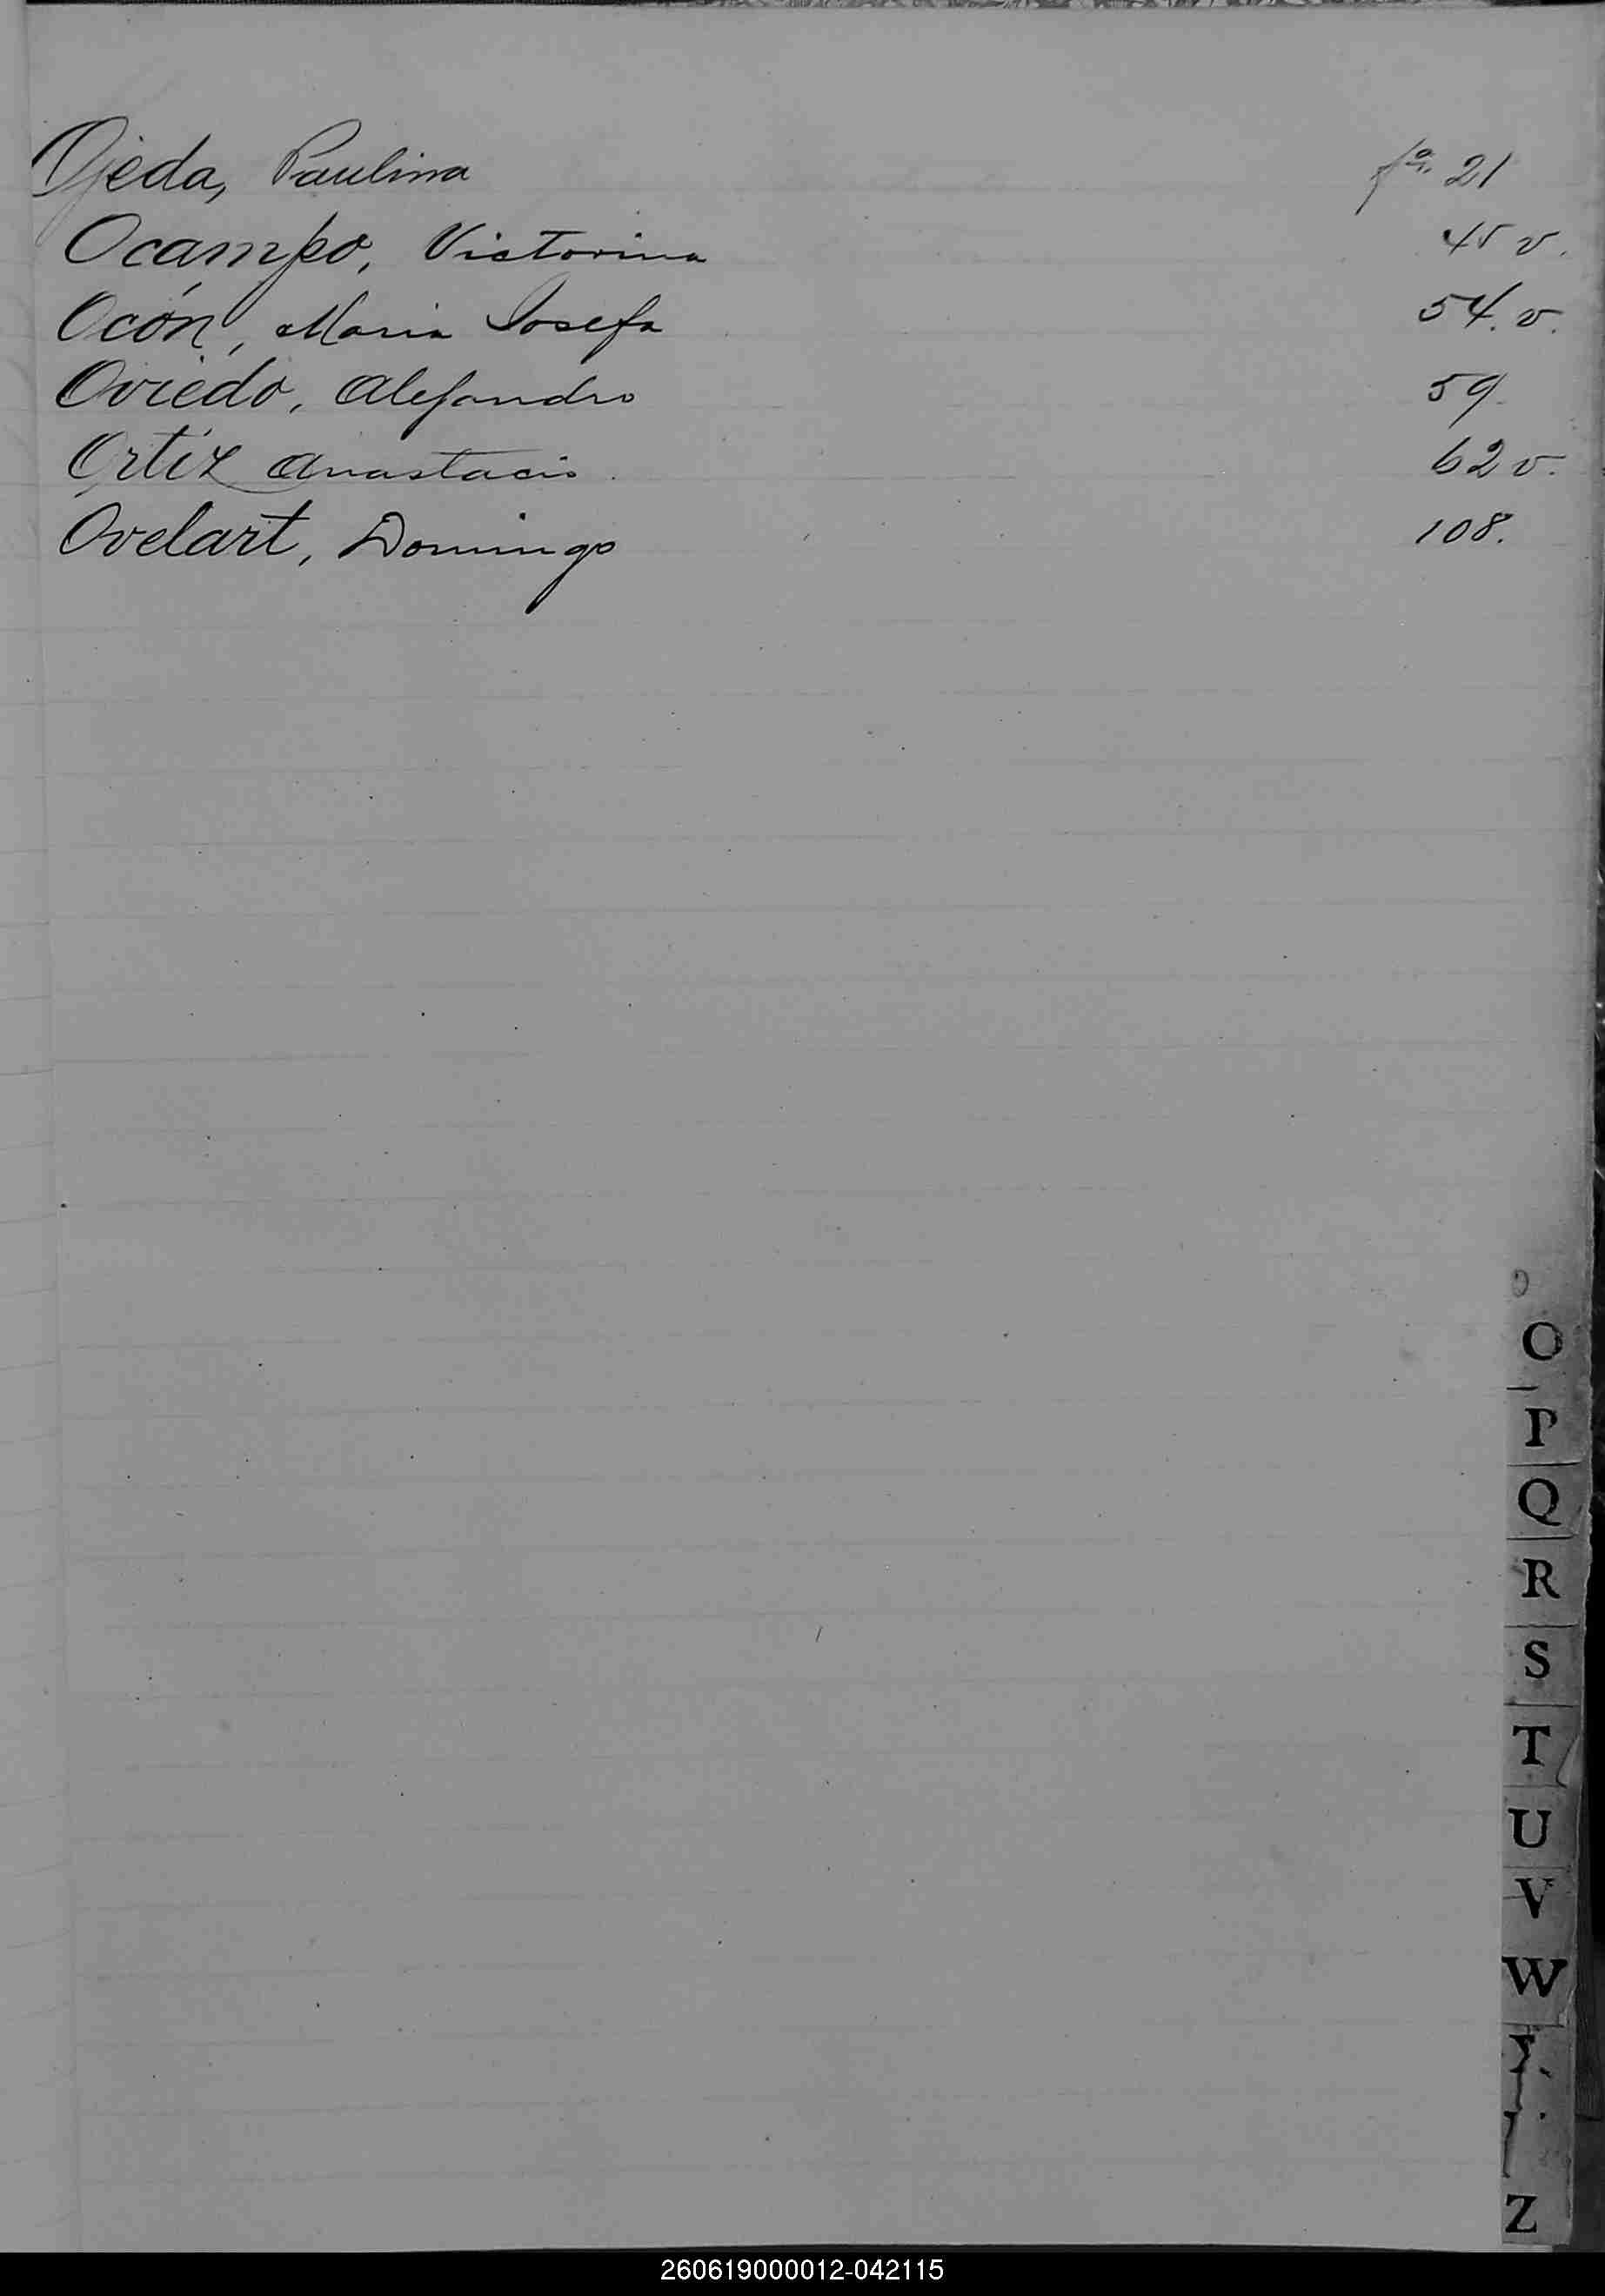 Ojeda, Paulina fª. 21
Ocampo, Victorina 45 v.
Ocón, Maria Josefa 54. v.
Oviedo, Alejandro 59.
Ortíz Anastacio. 62 v.
Ovelart, Domingo 108.
O
P
Q
R
S
T
U
V
W
Z
260619000012-042115